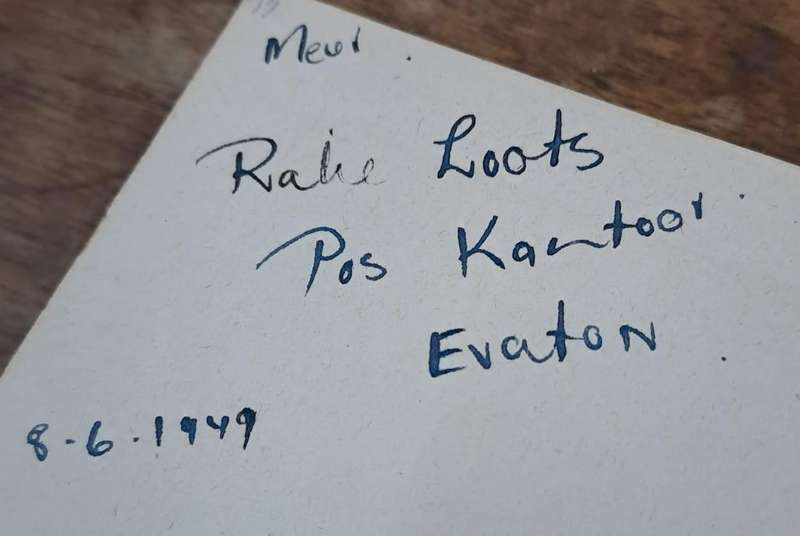 Meur.
Ralie Loots
Pos Kantoor.
Evaton.
8-6.1949